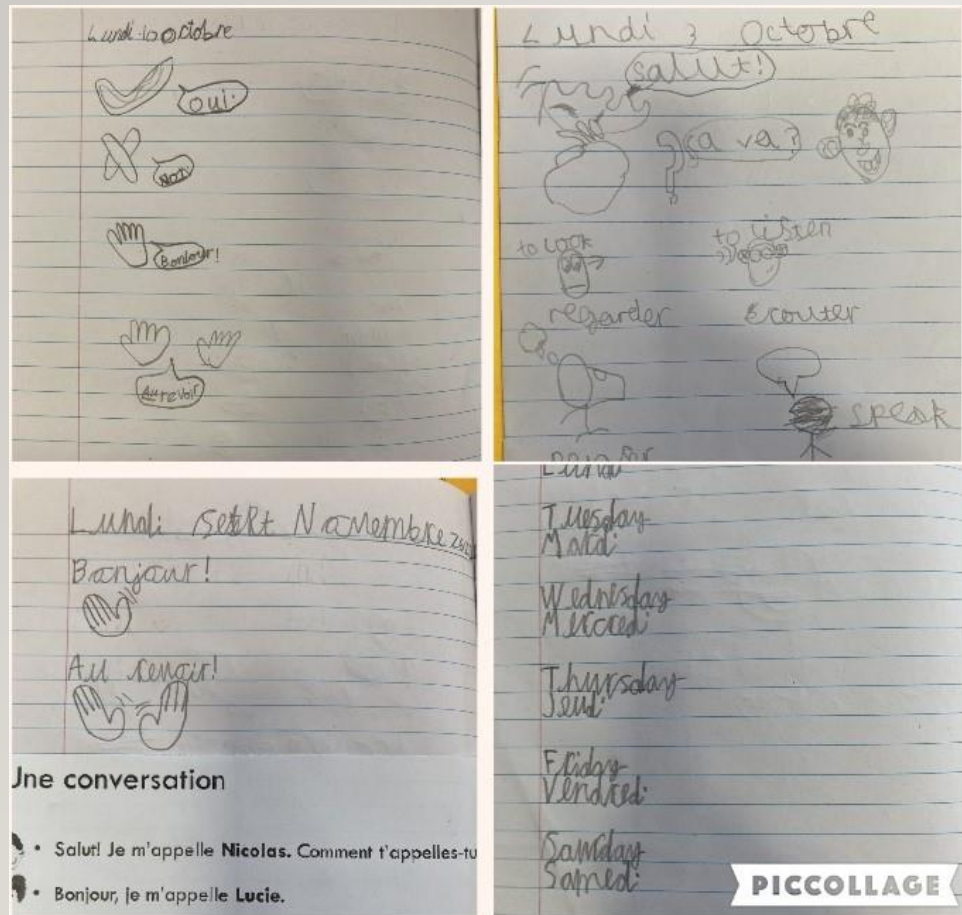 Lundi 10 Octobre
oui.
Non
Bonjour!
Au revoir
Lundi 3 Octobre
salut!
sa va?
to look
to listen
regarder
écouter
speak
Lundi sept Novembre
Bonjour!
Au revoir!
Une conversation
• Salut! Je m'appelle Nicolas. Comment t'appelles-tu
• Bonjour, je m'appelle Lucie.
Lundi
Tuesday
Mardi
Wednesday
Mercredi
Thursday
Jeudi
Friday
Vendredi
Samedi
PICCOLLAGE